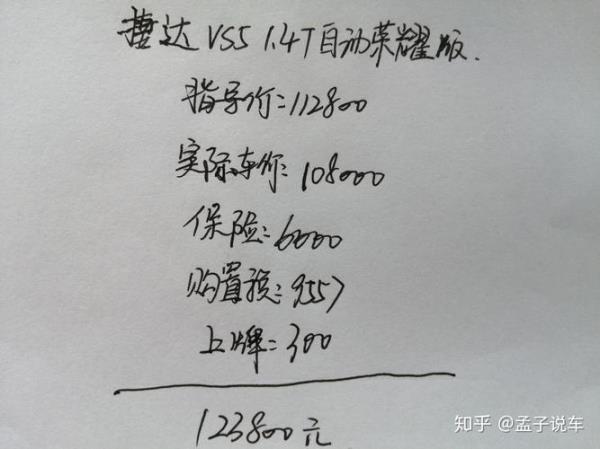 捷达VS5 1.4T自动荣耀版.
指导价:112800
实际车价:108000
保险:6000
购置税:9557
上牌:300
123800元
知乎 @孟子说车